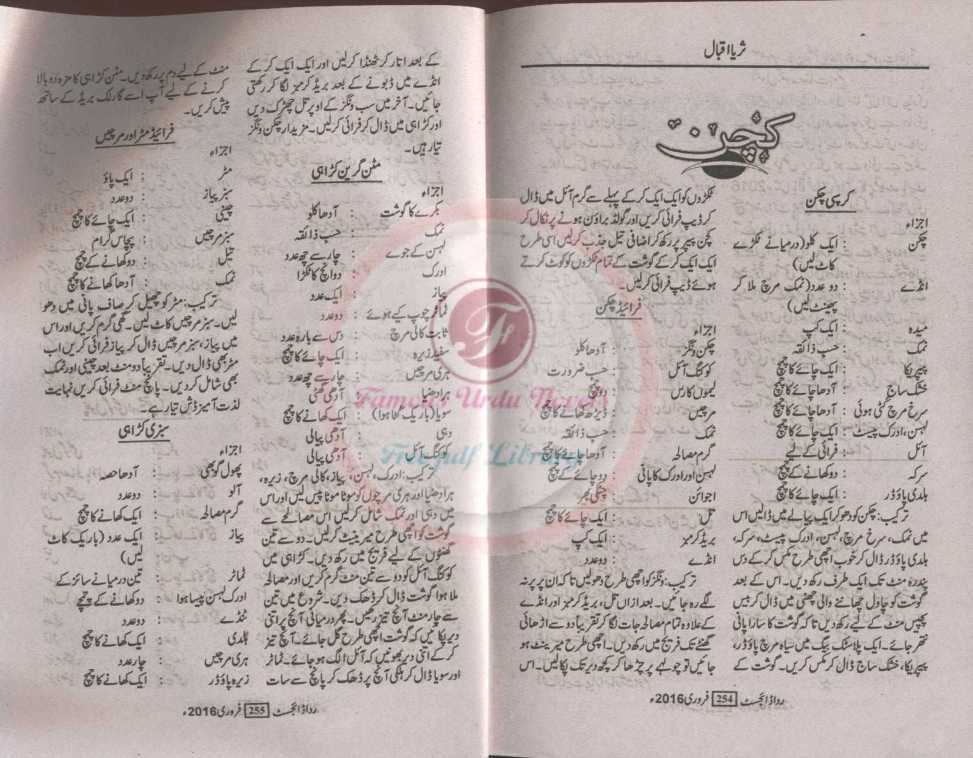 ثریا اقبال
کچن
کرسپی چکن
اجزاء
چکن : ایک کلو (درمیانے ٹکڑے
کاٹ لیں)
انڈے : دو عدد (نمک مرچ ملا کر
پھینٹ لیں)
میدہ : ایک کپ
نمک : حسب ذائقہ
پیپریکا : ایک چائے کا چمچ
خشک ساج : آدھا چائے کا چمچ
سرخ مرچ کٹی ہوئی : آدھا چائے کا چمچ
لہسن، ادرک پیسٹ : ایک چائے کا چمچ
آئل : فرائی کے لیے
سرکہ : دو کھانے کے چمچ
ہلدی پاؤڈر : ایک چائے کا چمچ
ترکیب: چکن کو دھو کر ایک پیالے میں ڈالیں اس
میں نمک، سرخ مرچ، لہسن، ادرک پیسٹ، سرکہ،
ہلدی پاؤڈر ڈال کر خوب اچھی طرح مکس کر کے دس
پندرہ منٹ تک ایک طرف رکھ دیں۔ اس کے بعد
گوشت کو چاول چھاننے والی چھلنی میں ڈال کر بیس
پچیس منٹ کے لیے رکھ دیں تاکہ گوشت کا سارا پانی
نتھر جائے۔ ایک پلاسٹک بیگ میں سیاہ مرچ پاؤڈر،
پیپریکا، خشک ساج ڈال کر مکس کریں۔ گوشت کے
ٹکڑوں کو ایک ایک کر کے پہلے سے گرم آئل میں ڈال
کر ڈیپ فرائی کریں اور گولڈ براؤن ہونے پر نکال کر
کچن پیپر پر رکھ کر اضافی تیل جذب کر لیں اسی طرح
ایک ایک کر کے گوشت کے تمام ٹکڑوں کو کوٹ کرتے
ہوئے ڈیپ فرائی کر لیں۔
فرائیڈ چکن
اجزاء
چکن ونگز : آدھا کلو
کوکنگ آئل : حسب ضرورت
لیموں کا رس : چمچ
مرچیں : ڈیڑھ کھانے کا چمچ
نمک : حسب ذائقہ
گرم مصالحہ : آدھا چائے کا چمچ
لہسن اور ادرک کا پانی : دو چائے کے چمچ
اجوائن : چٹکی بھر
تل : ایک چائے کا چمچ
بریڈ کرمز : ایک کپ
انڈے : دو عدد
ترکیب: ونگز کو اچھی طرح دھو لیں تاکہ ان پر پر نہ
لگے رہ جائیں۔ بعد ازاں تل، بریڈ کرمز اور انڈے
کے علاوہ تمام مصالحہ جات لگا کر تقریباً دو سے اڑھائی
گھنٹے تک فریج میں رکھ دیں۔ اچھی طرح میرینٹ ہو
جائیں تو چولہے پر چڑھا کر کچھ دیر تک پکا لیں۔ اس
رداڈائجسٹ 254 فروری 2016ء
کے بعد اتار کر ٹھنڈا کر لیں اور ایک ایک کر کے
انڈے میں ڈبونے کے بعد بریڈ کرمز لگا کر رکھتی
جائیں۔ آخر میں سب ونگز کے اوپر تل چھڑک دیں
اور کڑاہی میں ڈال کر فرائی کر لیں۔ مزیدار چکن ونگز
تیار ہیں۔
مٹن گرین کڑاہی
اجزاء
بکرے کا گوشت : آدھا کلو
نمک : حسب ذائقہ
لہسن کے جوے : چار سے چھ عدد
ادرک : دو انچ کا ٹکڑا
پیاز : ایک عدد
ٹماٹر چوپ کیے ہوئے : دو عدد
ثابت کالی مرچ : دس سے بارہ عدد
سفید زیرہ : ایک چائے کا چمچ
ہری مرچیں : چار سے چھ عدد
ہرا دھنیا : آدھی گٹھی
سویا (باریک کٹا ہوا) : ایک کھانے کا چمچ
دہی : آدھی پیالی
کوکنگ آئل : آدھی پیالی
ترکیب: ادرک، لہسن، پیاز، کالی مرچ، زیرہ،
ہرا دھنیا اور ہری مرچوں کو موٹا موٹا پیس لیں اور اس
میں دہی اور نمک شامل کر لیں اس مصالحے سے
گوشت کو اچھی طرح میرینیٹ کر لیں۔ دو سے تین
گھنٹوں کے لیے فریج میں رکھ دیں۔ کڑاہی میں
کوکنگ آئل کو دو سے تین منٹ گرم کریں اور مصالحہ
ملا ہوا گوشت ڈال کر ڈھک دیں۔ شروع میں تین
سے چار منٹ آنچ تیز رکھیں۔ پھر درمیانی آنچ پر اتنی
دیر پکائیں کہ گوشت اچھی طرح گل جائے۔ آنچ تیز
کر کے اتنی دیر بھونیں کہ آئل الگ ہو جائے۔ ٹماٹر
اور سویا ڈال کر ہلکی آنچ پر ڈھک کر پانچ سے سات
منٹ کے لیے دم پر رکھ دیں۔ مٹن کڑاہی کا مزہ دوبالا
کرنے کے لیے آپ اسے گارلک بریڈ کے ساتھ
پیش کریں۔
فرائیڈ مٹر اور مرچیں
اجزاء
مٹر : ایک پاؤ
سبز پیاز : دو عدد
چینی : ایک چائے کا چمچ
سبز مرچیں : پچاس گرام
تیل : دو کھانے کے چمچ
نمک : آدھا کھانے کا چمچ
ترکیب: مٹر کو چھیل کر صاف پانی میں دھو
لیں۔ سبز مرچیں کاٹ لیں۔ گھی گرم کریں اور اس
میں پیاز، سبز مرچیں ڈال کر پیاز فرائی کریں اب
مٹر بھی ڈال دیں۔ تقریباً دو منٹ بعد چینی اور نمک
بھی شامل کر دیں۔ پانچ منٹ فرائی کریں نہایت
لذت آمیز ڈش تیار ہے۔
سبزی کڑاہی
اجزاء
پھول گوبھی : آدھا حصہ
آلو : دو عدد
گرم مصالحہ : ایک کھانے کا چمچ
پیاز : ایک عدد (باریک کاٹ
لیں)
ٹماٹر : تین درمیانے سائز کے
ادرک لہسن پیسا ہوا : دو کھانے کے چمچے
ٹنڈے : دو عدد
ہلدی : ایک کھانے کا چمچ
ہری مرچیں : چار عدد
زیرہ پاؤڈر : ایک کھانے کا چمچ
رداڈائجسٹ 255 فروری 2016ء
Famous Urdu Novels
Free pdf Library